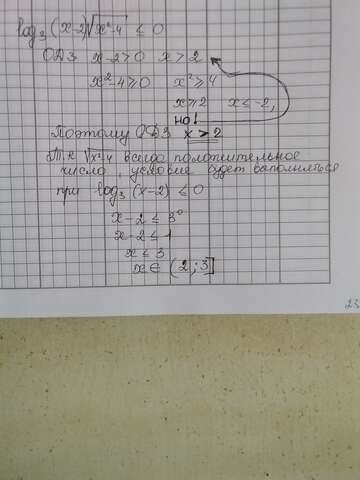 log₃(x-2)√x²-4 ≤ 0
ОДЗ x-2>0 x>2
x²-4≥0 x²≥4
x≥2 x≤-2,
но!
Поэтому ОДЗ x>2
Т.к √x²-4 всегда положительное
число, условие будет выполняться
при log₃(x-2) ≤ 0
x-2 ≤ 3⁰
x-2 ≤ 1
x ≤ 3
x ∈ (2;3]
23